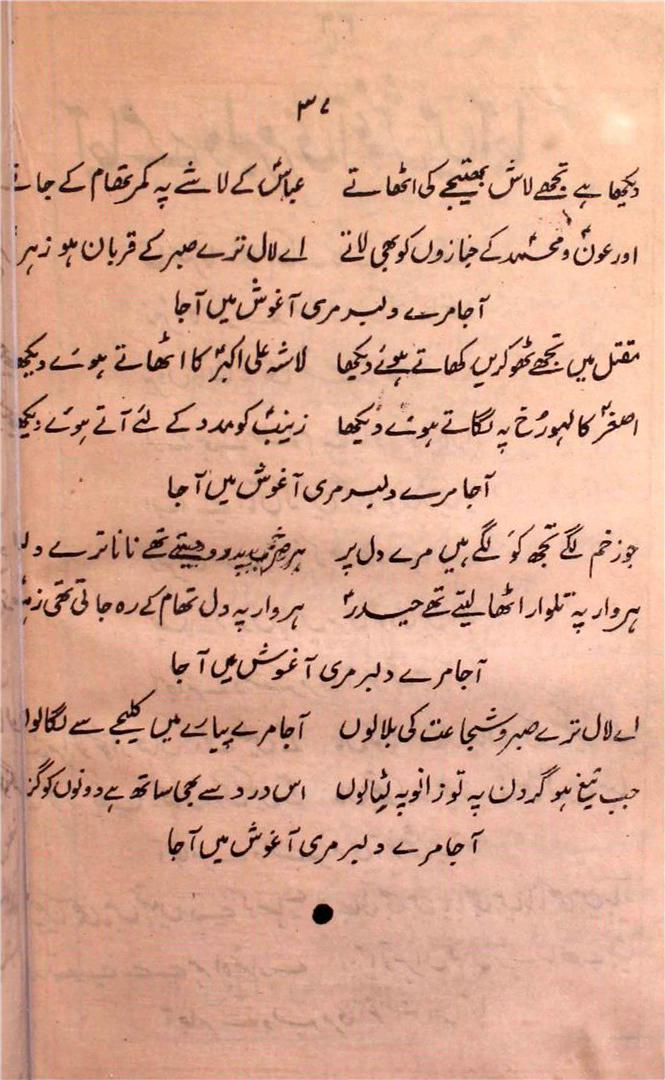 ۳۷
دیکھا ہے تجھے لاش بھتیجے کی اٹھاتے عباسؑ کے لاشے پہ کمر تھام کے جاتے
اور عونؑ و محمدؑ کے جنازوں کو بھی لاتے اے لال ترے صبر کے قربان ہو زہرا
آجا مرے دلبر مری آغوش میں آجا
مقتل میں تجھے ٹھوکریں کھاتے ہوئے دیکھا لاشہ علی اکبرؑ کا اٹھاتے ہوئے دیکھا
اصغرؑ کا لہو رُخ پہ لگاتے ہوئے دیکھا زینبؑ کو مدد کے لئے آتے ہوئے دیکھا
آجا مرے دلبر مری آغوش میں آجا
جو زخم لگے تجھ کو لگے ہیں مرے دل پر ہر ضرب پہ رو دیتے تھے نانا ترے
ہر وار پہ تلوار اٹھا لیتے تھے حیدرؑ ہر وار پہ دل تھام کے رہ جاتی تھی
آجا مرے دلبر مری آغوش میں آجا
اے لال ترے صبر و شجاعت کی بلا لوں آجا مرے پیارے میں کلیجے سے لگا لوں
جب تیغ ہو گردن پہ تو زانو پہ لٹا لوں اس درد سے بھی ساتھ ہے دونوں کو
آجا مرے دلبر مری آغوش میں آجا